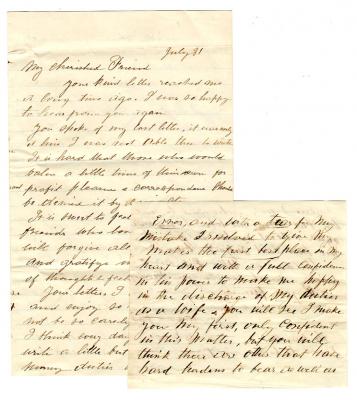 July 31
My Cherished Friend
Your kind letter reached me
a long time ago. I was so happy
to hear from you again.
You spoke of my last letter, it was only
a line I was not able then to write
is a hard that those who would
value a little time of their own for
profit pleasure & correspondence should
be denied it by
It is sweet to feel
friends who
will forgive all
and gratify
of thought & feel
Your letters I
and enjoy so
not be so
I think every day
write a little but
many duties
Error, and with a tear for my
mistake I resolved to give the
Master the first best place in my
heart and with a full confidence
in his power to make me happy
in the discharge of My duties
as a wife & you will see I make
you my first, only confident
in this matter, but you will
think there are others that have
hard burdens to bear as well as